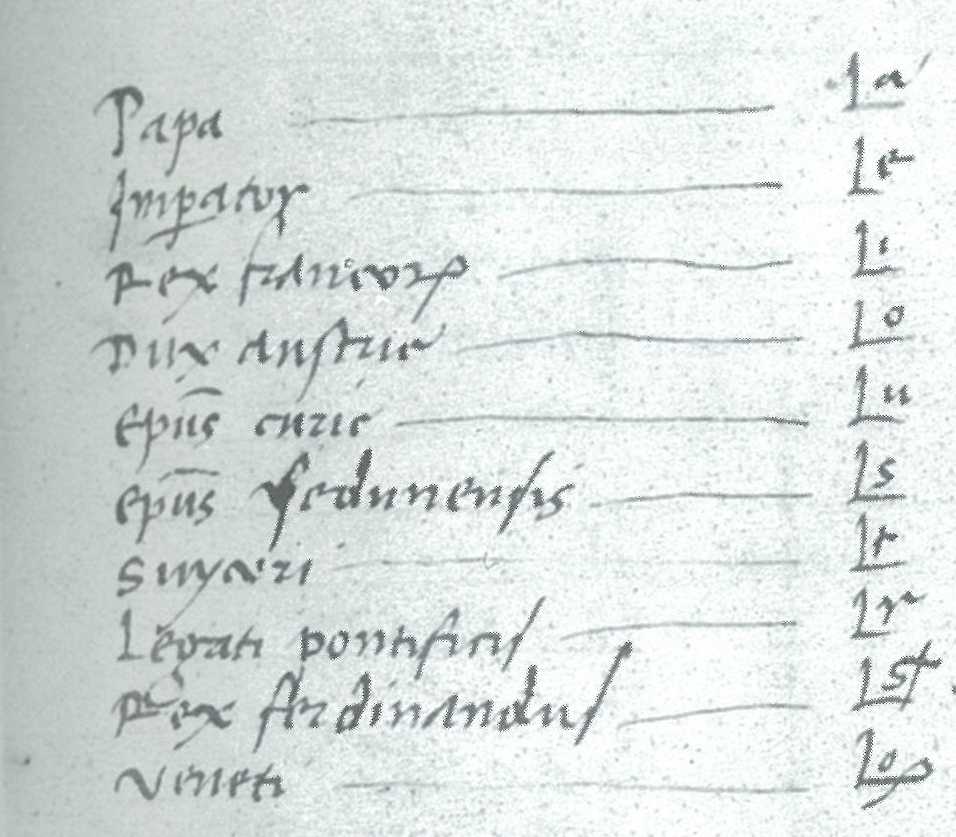 Papa La
Imp̲ator Le
Rex francorꝝ Li
Dux austrie Lo
ep̅us curie Lu
ep̅us sedunensis Ls
Suyceri Lt
Legati pontificis Lr
Rex ferdinandus Lst
Veneti